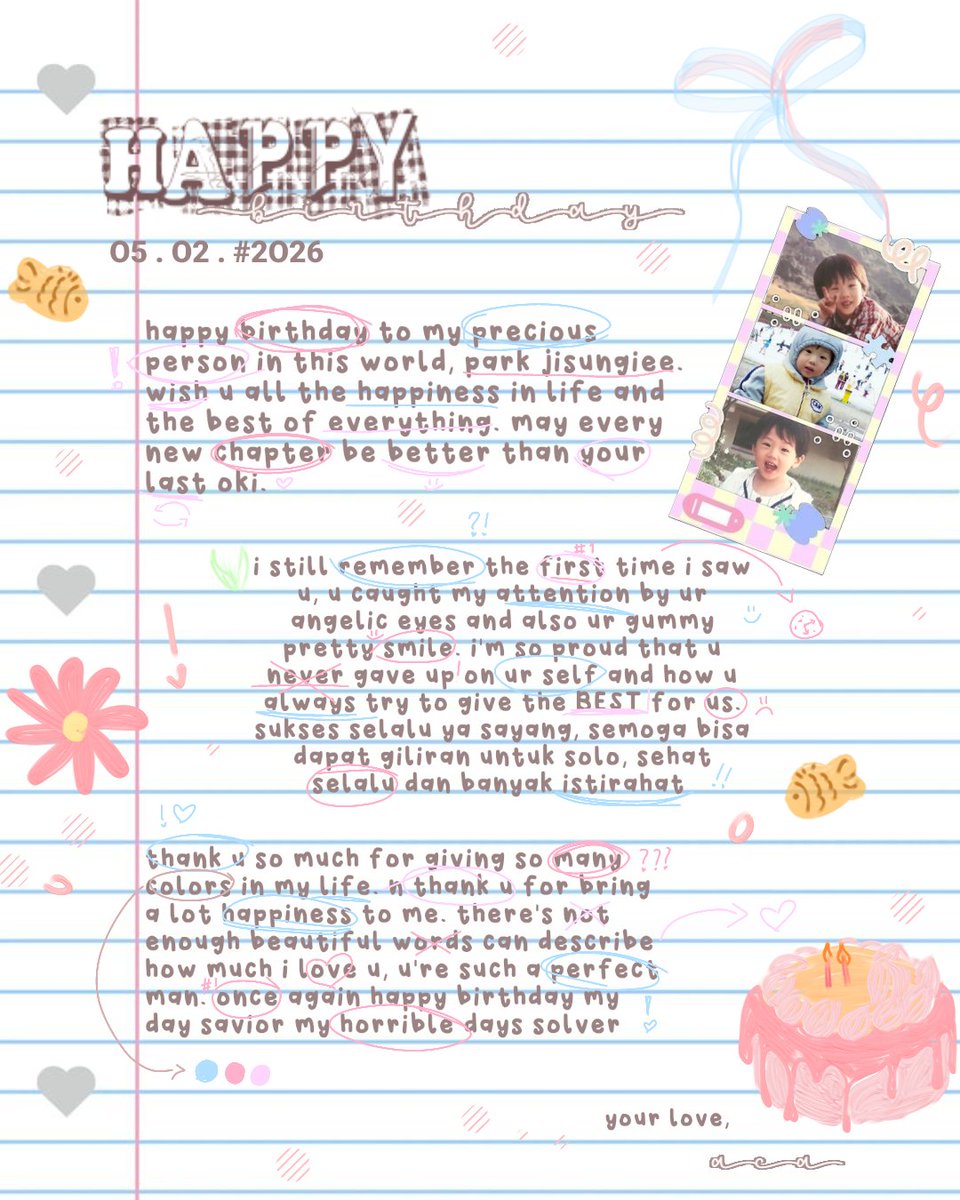 HAPPY
birthday
05 . 02 . #2026
happy birthday to my precious
person in this world, park jisungiee.
wish u all the happiness in life and
the best of everything. may every
new chapter be better than your
last oki.
?!
#1
i still remember the first time i saw
u, u caught my attention by ur
angelic eyes and also ur gummy
pretty smile. i'm so proud that u
never gave up on ur self and how u
always try to give the BEST for us.
sukses selalu ya sayang, semoga bisa
dapat giliran untuk solo, sehat
selalu dan banyak istirahat
!!
!
thank u so much for giving so many ???
colors in my life. n thank u for bring
a lot happiness to me. there's not
enough beautiful words can describe
how much i love u, u're such a perfect
#1
man. once again happy birthday my
day savior my horrible days solver
!
your love,
aca